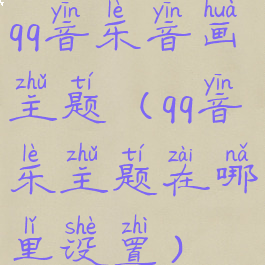 yīn lè yīn huà
qq音乐音画
zhǔ tí yīn
主题（qq音
lè zhǔ tí zài nǎ
乐主题在哪
lǐ shè zhì
里设置）